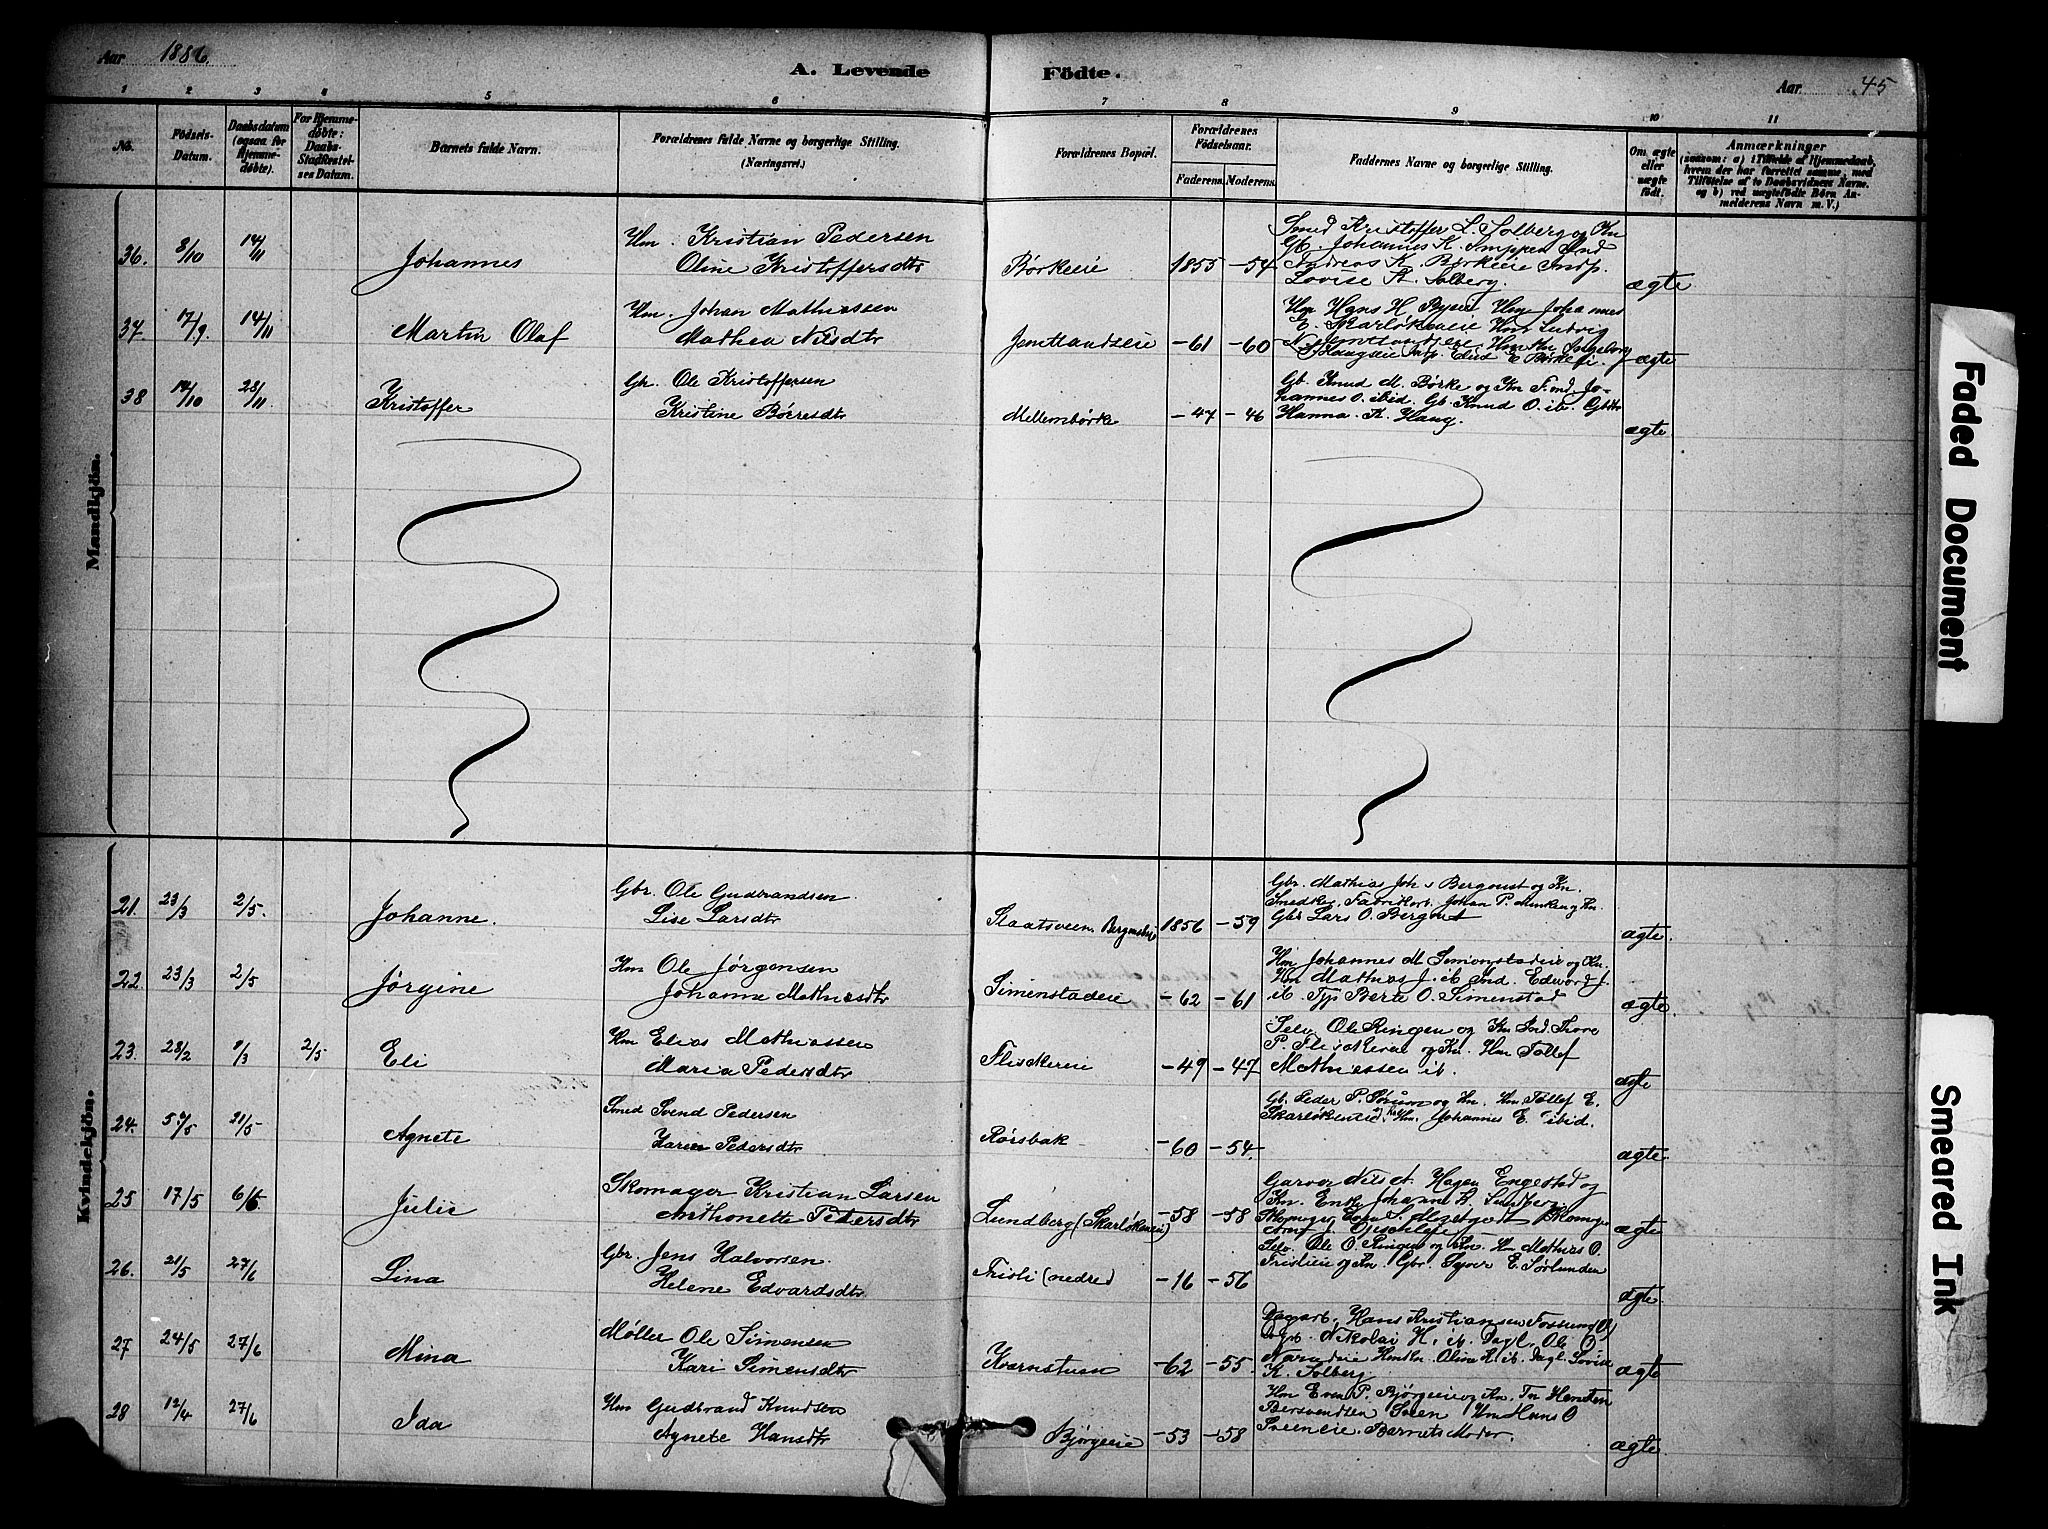 Aar 1886.
A. Levende Födte.
Aar 45
1 2 3 4 5 6 7 8 9 10 11
No.
Födsels-
Datum.
Daabsdatum
(ogsaa for
Hjemme-
døbte).
For Hjemme-
døbte:
Daabs-
Stadfæstel-
ses Datum.
Barnets fulde Navn.
Forældrenes fulde Navne og borgerlige Stilling.
(Næringsvei.)
Forældrenes Bopæl.
Forældrenes
Födselsaar.
Faderens. Moderens.
Faddernes Navne og borgerlige Stilling.
Om ægte
eller
uægte
født.
Anmærkninger
(saasom: a) i Tilfælde af Hjemmedaab,
hvem der har forrettet samme, med
Tilföielse af to Daabsvidners Navne.
og b) ved uægtefödte Börn An-
melderens Navn m. V.)
Mandkjön.
36. 8/10 14/11 Johannes
Hm. Kristian Pedersen
Oline Kristoffersdtr
Børkeeie 1855 -54
Smed Kristoffer L. Solberg og Kn
Gb. Johannes K.
Andreas K. Børkeeie Indp.
Lovise K. Solberg.
ægte
37. 17/9. 14/11 Martin Olaf
Hm. Johan Mathiesen
Mathea Nilsdtr
Jemtlandseie -61 -60
Hm Hans H. Byeie Hm Johannes
E. Skarløkeneie Hm Ludvig
ægte
38 14/10 28/11 Kristoffer
Gb. Ole Kristoffersen
Kristine Børresdtr
Mellembørke -47 -46
Gb. Knud M. Børke og Kn Jo-
hannes O. ibid. Gb Knud O. ib. Gbdtr
Hanna K. Haug.
ægte
Kvindekjön.
21. 23/3 2/5. Johanne.
Gbr. Ole Gudbrandsen
Lise Larsdtr
Staatsveen 1856 -59
Gbr. Mathias Joh.s Bergqust og Kn.
Johan P. og Kn.
Gbr Lars O.
ægte
22. 23/3 2/5 Jørgine
Hm Ole Jørgensen
Johanne Mathiasdtr
Simenstadeie -62 -61
Hm Johannes M. Simonstadeie og Kn.
Hm Mathias J. ib. Ind. Edvard J.
ib. Typ Berte O. Simenstad
ægte.
23. 28/2 /3 2/5 Eli
Hm Elias Mathiassen
Maria Pedersdtr
Fliskereie -49 -47
Selv. Ole Ringen og Kn Ind. Thore
P. Fliskereie og Kn. Hm Tollef
Mathiessen ib.
ægte
24. 5/5 21/5 Agnete
Smed Svend Pedersen
Karen Pedersdtr
Rørsbak -60 -54.
Gb. Peder P. Sørum og Kn. Hm. Tollef E.
Skarløkeneie og Kn. Hm. Johannes E. ibid.
ægte.
25 17/5 6/6 Julie
Skomager Kristian Larsen
Anthonette Pedersdtr
Lundberg (Skerløkeneie) -58 -58
Garver Nils A. Hagen Engestad og
Kn. Enke Johanne L. Lundberg
ægte
26. 21/5 27/6 Lina
Gbr. Jens Halvorsen.
Helene Edvardsdtr.
Tristi (nedre) -16 -56
Selv. Ole O. Ringen og Kn. Hm Mathias O.
Tristieie og Kn. Gbr. Syver E. Sørlunden
ægte.
27 24/5 27/6 Mina
Møller Ole Simensen
Kari Simensdtr
Kvernstuen -62 -55.
Dagarb. Hans Kristiansen Fossum
Nikolai H. ib. Dagl. Ole O.
K. Solberg.
ægte
28 12/4 27/6 Ida
Hm Gudbrand Knudsen
Agnete Hansdtr
Bjørgeeie -53 -58
Hm Even P. Bjørgeeie og Kn.
Bersvendsen Sveen Hm Hans O
Sveeneie. Barnets Moder.
ægte
Faded Document
Smeared Ink